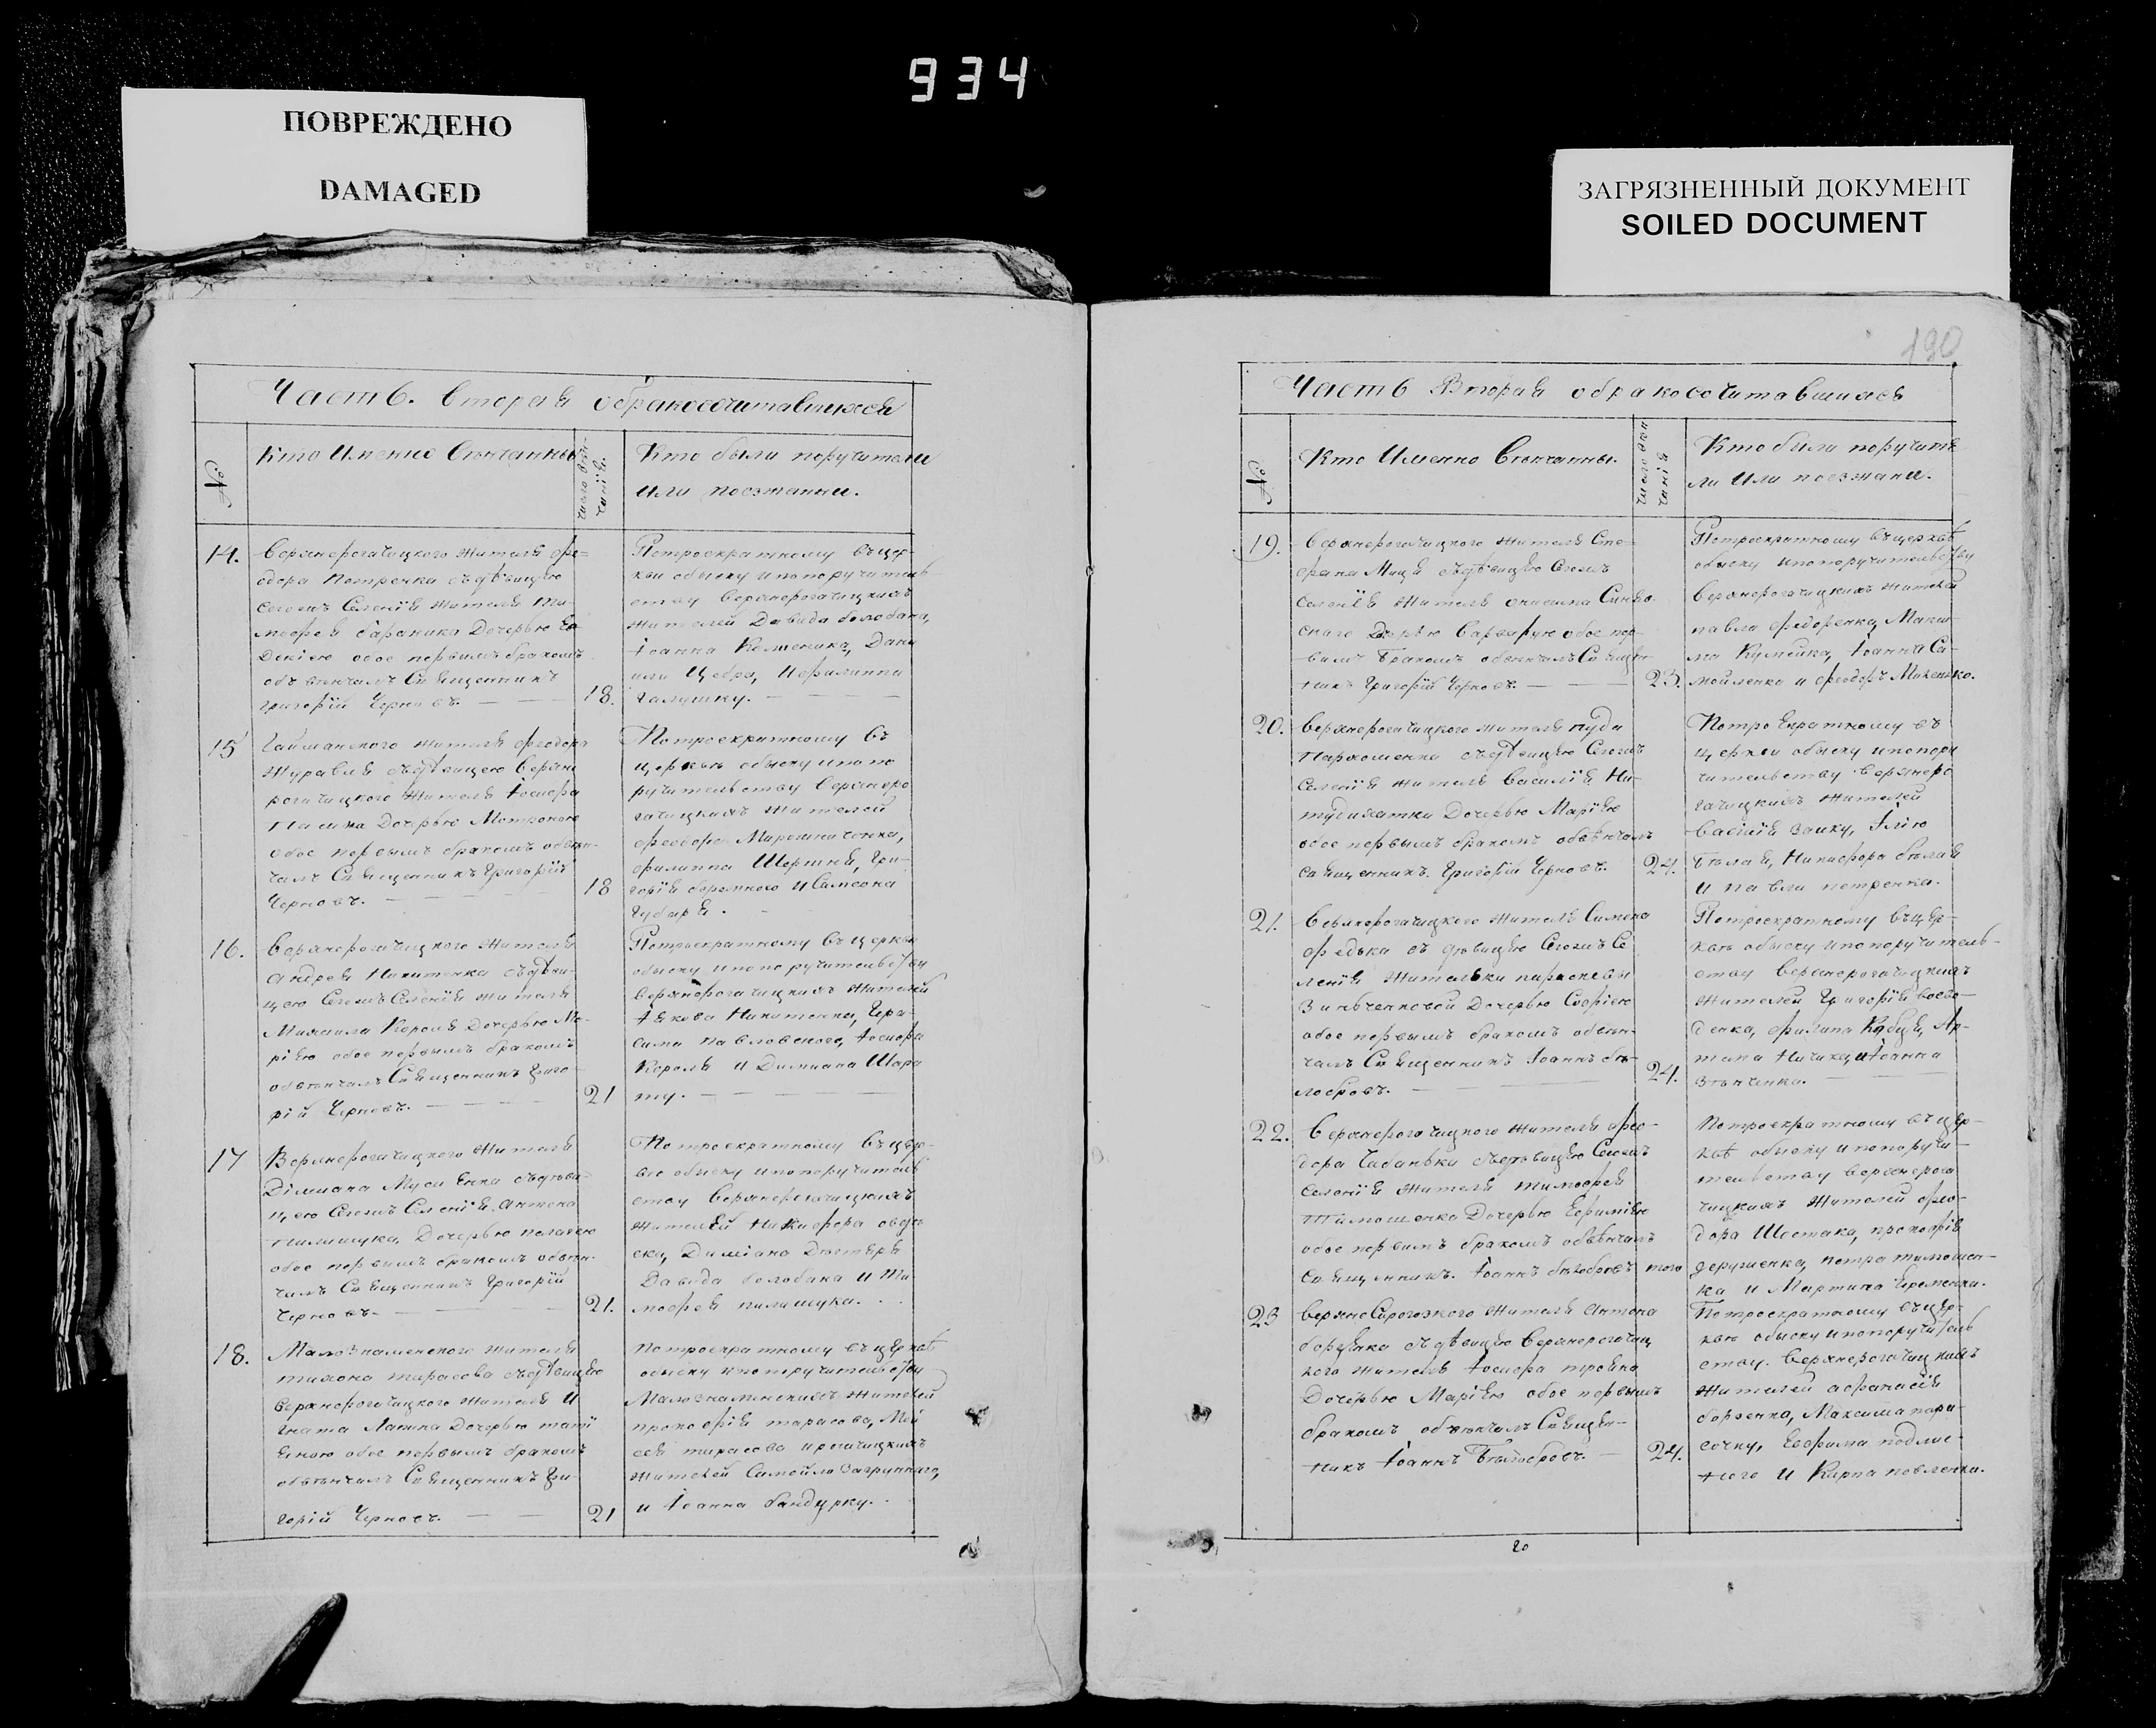 934
ПОВРЕЖДЕНО
DAMAGED
ЗАГРЯЗНЕННЫЙ ДОКУМЕНТ
SOILED DOCUMENT
190
Часть. Вторая обракосочитавшихся
№
Кто Именно Венчанны
число вен-
чанія.
Кто были поручители
или поезжанни.
14.
Верхнерогачицкого жителя Фе-
одора Петренка съдѣвицею
Сегожъ Селенія жителя Ти-
мофея бараника Дочерью Ев
докіею обое первымъ бракомъ
обвѣнчалъ Священникъ
Григорій Черновъ.
18.
Потроекратному въцер-
кви обыску ипопоручитель
ству Верхнерогачицкихъ
жителей Давида болобана,
Іоанна Коменика, Дани
ила Цебра, Ифилиппа
Галушку.
15
Гайманского жителя Феодора
Журавля съдѣвицею Верхне
рогачицкого жителя Іосифа
Пасика Дочерью Мотроною
обое первымъ бракомъ обвѣн-
чалъ Священникъ Григорій
Черновъ.
18
Потроекратному въ
церквѣ обыску ипопо
ручительству Верхнеро
гачицкихъ жителей
Феодора Мирошниченка,
Филиппа Шершня, Гри-
горія боромного и Самсона
Губаря.
16.
Верхнерогачицкого жителя
Андрея Никитенка съдѣви-
цею Сегожъ Селенія жителя
Михаила Короля Дочерью Ма-
рію обое первымъ бракомъ
обвѣнчалъ Священникъ Григо-
рій Черновъ.
21
Потроекратному въцеркви
обыску ипопоручительству
Верхнерогачицкихъ жителей
Іякова Никитенка, Гера-
сима Павловского, Іосифа
Короля и Димиана Шара
ту.
17
Верхнерогачицкого жителя
Діміана Мусіенка съдѣви-
цею Сегожъ Селенія Антона
Пилипщука Дочерью Пелагею
обое первымъ бракомъ обвѣн-
чалъ Священникъ Григорій
Черновъ.
21.
Потроекратному въцер-
вѣ обыску ипопоручитель
ству Верхнерогачицкихъ
жителей Никифора
Давида болобана и Ти-
мофея пилипщука.
18.
Малознаменского жителя
тихона тарасова съдѣвицею
Верхнерогачицкого жителя И
гната Дочерью тати
яною обое первымъ бракомъ
обвѣнчалъ Священникъ Гри-
горій Черновъ.
21
Потроекратному въцерквѣ
обыску ипопоручительству
Малознаменскихъ жителей
прокофія тарасова, Мой
сея тарасова ирогачицкихъ
жителей Самойла Загрунного,
и Іоанна бандурку.
Часть Вторая обракосочитавшихся
№
Кто Именно Вѣнчанны.
число вѣн
чанія
Кто были поручите
ли или поезжани.
19.
Верхнерогачицкого жителя Сте-
фана Миця съдѣвицею Сегожъ
Селенія жителя онисима Синяв
ского Дочерью Варварую обое пер-
вимъ Бракомъ обвѣнчалъ Священ
никъ Григорій Черновъ.
23.
Потроекратному въцерквѣ
обыску ипопоручительству
Верхнерогачицкихъ жителей
павла федоренка, Макси
ма Кумейка, Іоанна Са-
мойленка и Феодоръ
20.
Верхнерогачицкого жителя
Пархоменка съдѣвицею Сегожъ
Селенія жителя Василія Ни-
Дочерью Марією
обое первымъ бракомъ обвѣнчалъ
священникъ. Григорій Черновъ.
24.
Потроекратному въ
церкви обыску ипопору
чительству Верхнеро
гачицкихъ жителей
Василія заику, Ілію
Бѣлая, Никифора бѣлая
и павла петренка.
21.
Верхнерогачицкого жителя Симона
Федька съ дѣвицею Сегожъ Се
ленія жительки параскевы
Зинченковой Дочерью Софією
обое первымъ бракомъ обвѣн-
чалъ Священникъ Іоаннъ бѣ-
лобровъ.
24.
Потроекратному въцер-
квѣ обыску ипопоручитель-
ству Верхнерогачицкихъ
жителей Григорія воево-
денка, филипа Кабця, Ар-
тана Ничика, иІоанна
зѣнченка.
22.
Верхнерогачицкого жителя Фео-
дора Чабаньки съдѣвицею Сегожъ
Селенія жителя тимофея
Тимошенка Дочерью Евфимією
обое первимъ бракомъ обвѣнчалъ
Священникъ. Іоаннъ бѣлобровъ
того
Потроекратному въцер-
квѣ обыску ипопоручи-
тельству верхнерога
чицкихъ жителей Фео-
дора Шестака, прокофія
дерушенка, петра тимошен-
ка и Мартина Еременка.
23
ВерхнеСѣрогозкого жителя Антона
борзенка съдѣвицею Верхнерогачиц
кого жителя Іосифа
Дочерью Марією обое первымъ
бракомъ обвѣнчалъ Священ-
никъ Іоаннъ Бѣлобровъ.
24.
Потроекратному въцер-
квѣ обыску ипопоручитель
ству. Верхнерогачицкихъ
жителей афанасія
борзенка, Максима пара-
сочку, Евфима подлис-
ного и Карпа повленка.
20